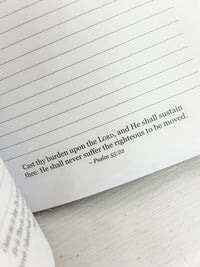 Cast thy burden upon the LORD, and He shall sustain
thee: He shall never suffer the righteous to be moved.
~ Psalm 55:22